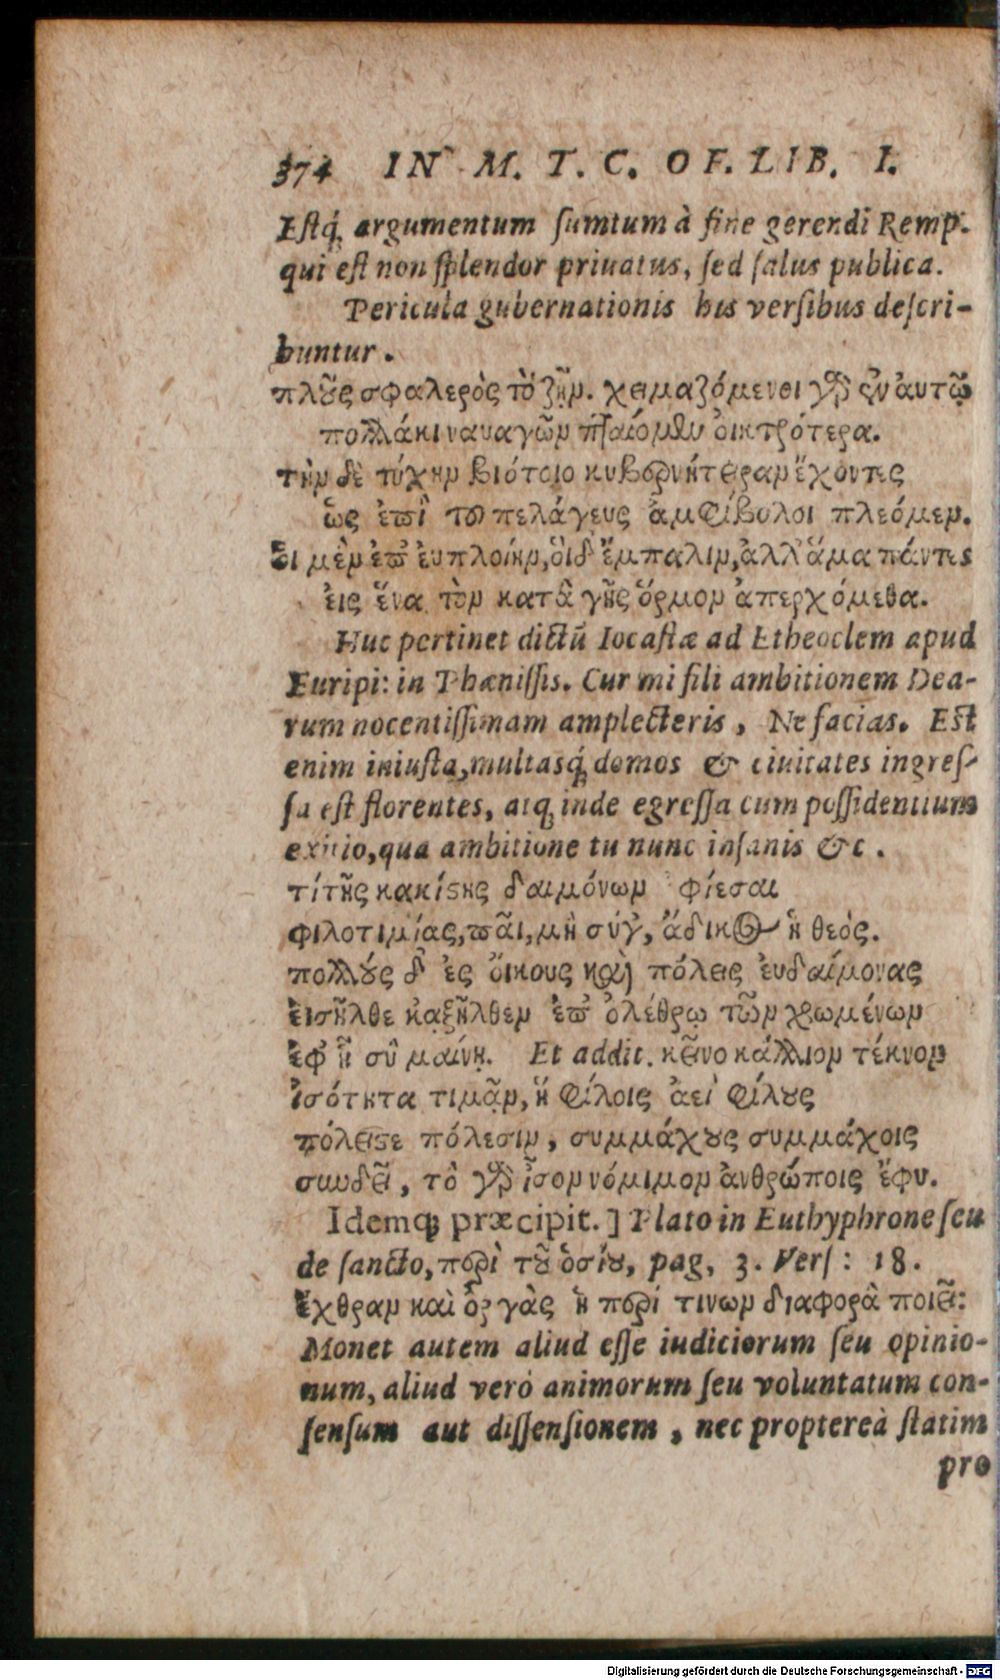 374 IN M. T. C. OF. LIB. I.
Estq́; argumentum sumtum à fine gerendi Remp.
qui est non splendor priuatus, sed salus publica.
Pericula gubernationis his versibus descri-
buntur.
πλοῦς σφαλερὸς τὸ ζῇν. χειμαζόμενοι γὰρ ἐν ἀυτῷ
πολλάκι ναυαγῶν πταίομεν οἰκτρότερα.
τὴν δὲ τύχην βιότοιο κυβερνήτειραν ἔχοντες
ὡς ἐπὶ του πελάγευς ἀμφίβολοι πλεόμεν.
ὃι μὲν ἐπ' ἐυπλοίην, ὃιδ' ἔμπαλιν, ἀλλ' ἅμα πάντες
ἐις ἕνα τὸν κατὰ γῆς ὅρμον ἀπερχόμεθα.
Huc pertinet dictũ Iocastæ ad Etheoclem apud
Euripi: in Phœnissis. Cur mi fili ambitionem Dea-
rum nocentissimam amplecteris, Ne facias. Est
enim iniusta, multasq́; domos & ciuitates ingres-
sa est florentes, atq; inde egressa cum possidentium
exitio, qua ambitione tu nunc insanis &c.
τί τῆς κακίστης δαιμόνων φίεσαι
φιλοτιμίας, παῖ, μὴ σύγ', ἄδικος ἡ θεός.
πολλούς δ' ἐς ὄικους καὶ πόλεις ἐυδαίμονας
ἐισῆλθε κἀξῆλθεν ἐπ' ὀλέθρῳ τῶν χρωμένων
ἐφ' ᾗ σὺ μαίνῃ. Et addit. κεῖνο κάλλιον τέκνον
ἰσότητα τιμᾷν, ἥ φίλοις ἀεὶ φίλους
πόλειςτε πόλεσιν, συμμάχους συμμάχοις
συνδεῖ, τὸ γὰρ ἶσον νόμιμον ἀνθρώποις ἔφυ.
Idemq; præcipit.] Plato in Euthyphrone seu
de sancto, περὶ τοῦ ὁσίου, pag, 3. Vers: 18.
ἔχθραν καὶ ὀργὰς ἡ περί τινων διαφορὰ ποιεῖ:
Monet autem aliud esse iudiciorum seu opinio-
num, aliud verò animorum seu voluntatum con-
sensum aut dissensionem, nec propterea̍ statim
pro
Digitalisierung gefördert durch die Deutsche Forschungsgemeinschaft - DFG